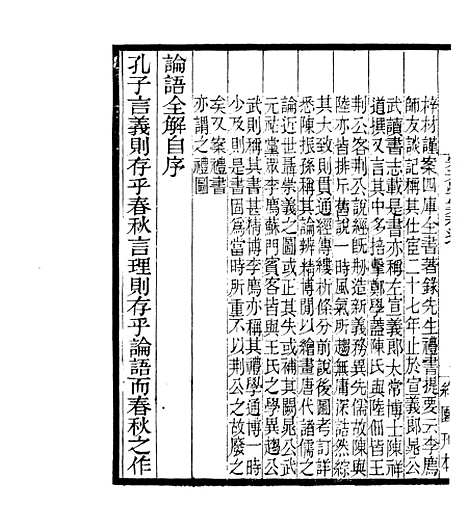 梓材謹案四庫全書著錄先生禮書提要云李廌
師友談記稱其仕宦二十七年止於宣義郎晁公
武讀書志載是書亦稱左宣義郎太常博士陳祥
道撰又言其中多掊擊鄭學蓋陳氏與陸佃皆王
荆公客荆公說經旣刱造新義務異先儒故陳與
陸亦皆排斥舊說一時風氣所趨無庸深詰然綜
其大致則貫通經傳縷析條分前說後圖考訂詳
悉陳振孫稱其論辨精博閒以繪畫唐代諸儒之
論近世聶崇義之圖或正其失或補其闕晁公武
元祐黨眾李廌蘇門賓客皆與王氏之學異趨公
武則稱其書甚精博李廌亦稱其禮學通博一時
少及則是書固爲當時所重不以荆公之故廢之
矣又案禮書
亦謂之禮圖
論語全解自序
孔子言義則存乎春秋言理則存乎論語而春秋之作